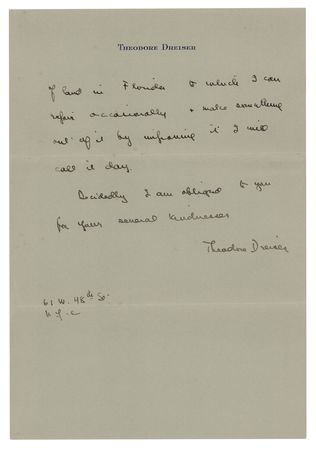 THEODORE DREISER
of land in Florida to which I can
repair occasionally & make something
out of it by improving it I will
call it day.
Decidedly I am obliged to you
for your several kindnesses
Theodore Dreiser
61 W. 48th St.
N.Y.C